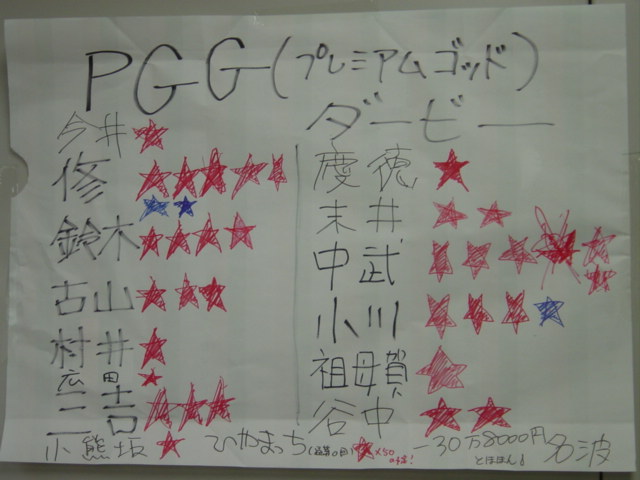 PGG(プレミアムゴッド)
ダービー
今井
修
鈴木
古山
村井
広田
三吉
慶徳
末井
中武
小川
祖母賀
谷中
小熊坂 ひやまっち ×50 -30万8000円 名波
とほほん♪